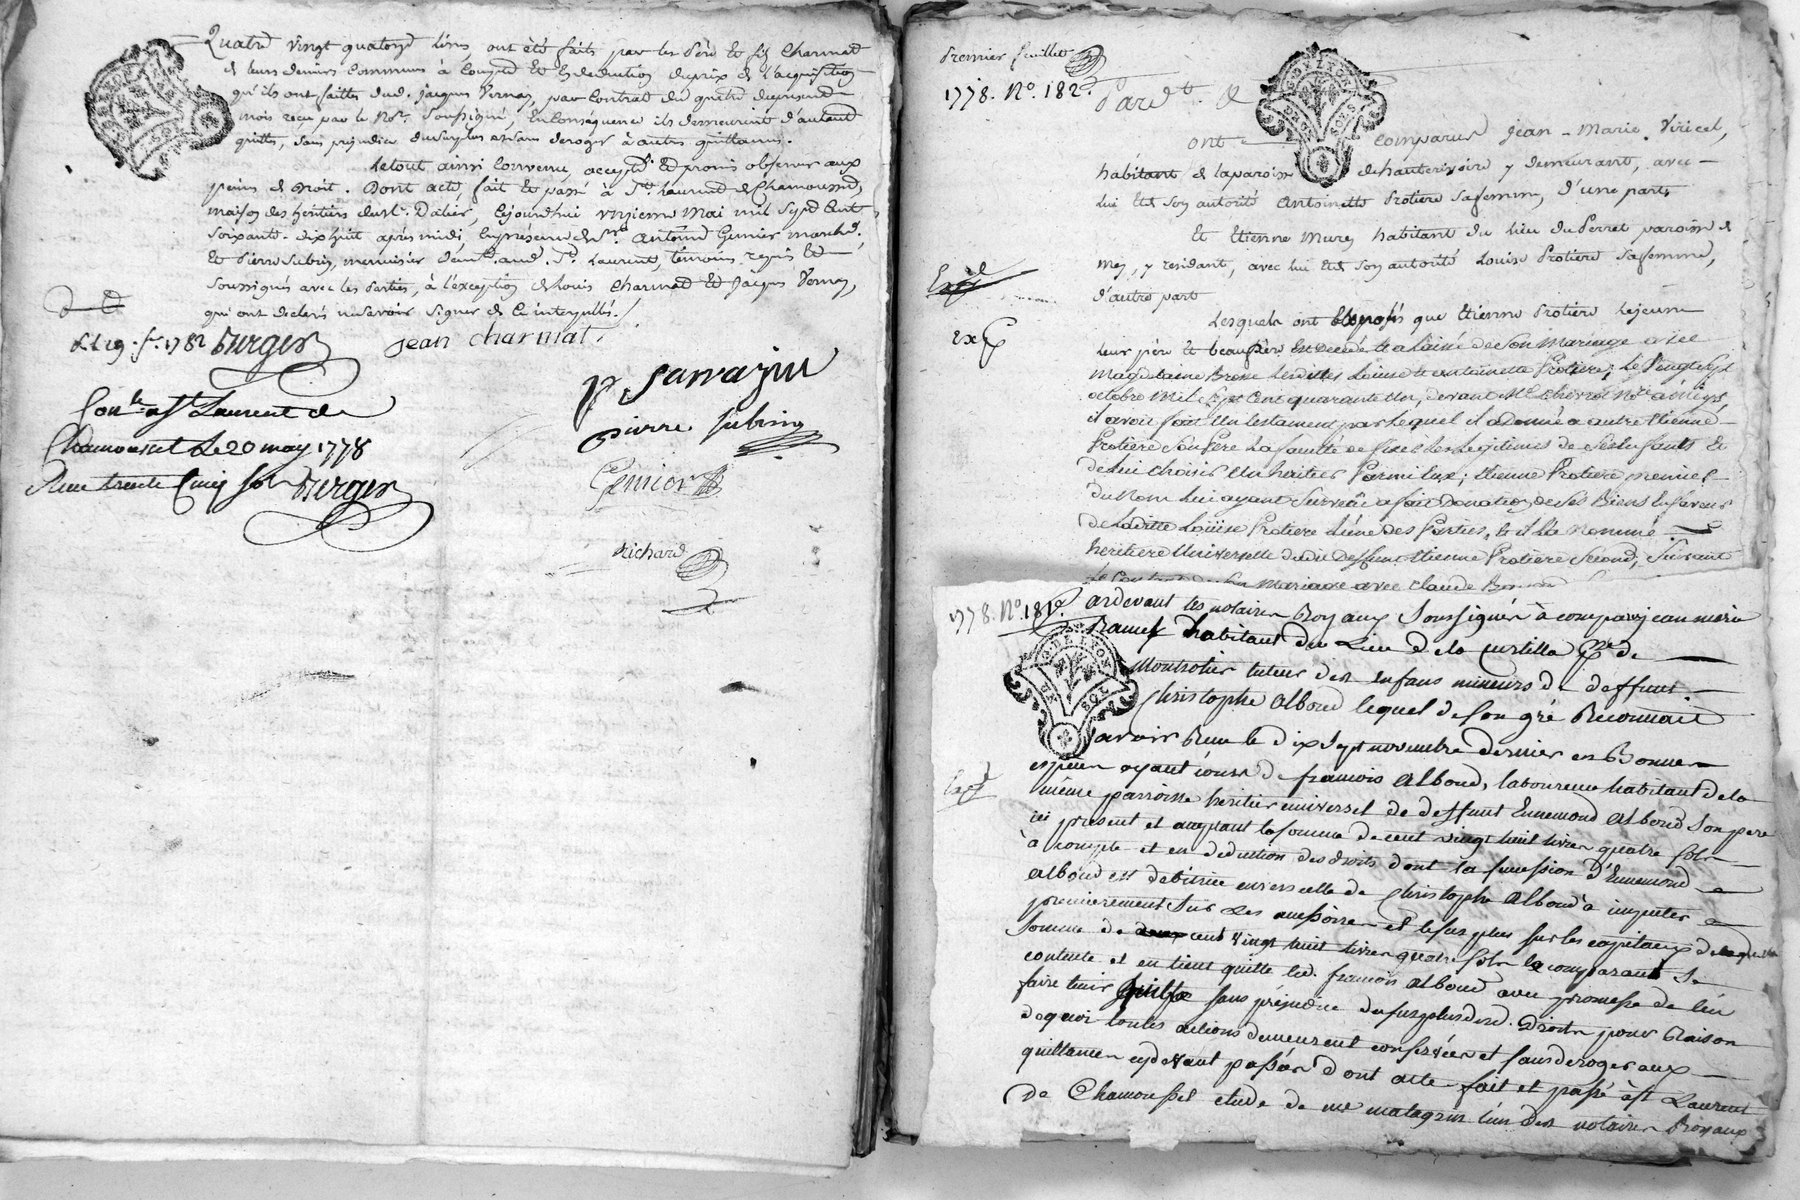 Quatre vingt quatorze livres, ont été faits par les Père et fils Charmat
de leurs deniers Communs à Compte et en déduction du prix de l'acquisition
qu'ils ont faitte dud. Jaques Vernay, par Contrat du quatre du present
mois reçu par le Nore. Soussigné, En Conséquence ils demeurent d'autant
quittes, sans prejudice du surplus et sans deroger à autres quittances.
Le tout ainsi Convenu, accepté et promis observer aux
peines de Droit. Dont acte fait et passé à St. Laurent de Chamousset,
maison des heritiers du Sr. Dalier, Cejourdhui onzieme Mai mil Sept Cent
Soixante-dix huit après midi, En présence de Sr. Antoine Genier marchd.
et Pierre Subrin, menuisier demt. aud. St. Laurent, témoins requis et
Soussignés avec les Parties, à l'exception de Louis Charmat et Jaques Vernay,
qui ont declaré ne savoir Signer de Ce interpellés./
1782 Burger
Jean Charmat
P. Sarrazin
Conle a St Laurent de
Chamousset Le 20 may 1778
Reçu trente Cinq sols Burger
pierre subrin
Genier
Richard
Premier feuillet
1778. No. 182.
Pardt. &
G. DE LYON
ont Comparus Jean-Marie Viricel,
habitant de la paroisse de hauterivoire y demeurant, avec
lui et de Son autorité Antoinette Protiere Sa femme, d'une part,
Et Etienne Murey habitant du lieu du Perret paroisse de
Meys, y residant, avec lui et de Son autorité Louise Protiere Sa femme,
d'autre part
Exp
Lesquels ont exposés que Etienne Protiere Lejeune
leur père et beaupère est decedé et a laissé de Son Mariage avec
Magdelaine Brosse Lesdittes Louise et antoinette Protiere; Le Vingt Sept
octobre Mil Sept Cent quarante un, devant Me Chirrot Nore à Meys,
il avoit fait Un testament par Lequel il a donné a autre Etienne
Protiere Son Pere La faculté de fixer Les Legitimes de Ses Enfants Et
de Lui choisir Un haitier Parmi Eux; Etienne Protiere premier
du Nom Lui ayant Survecu a fait Donation de Ses Biens En faveur
de Laditte Loüise Protiere L'une des Parties, et il L'a Nommé
heritiere Universelle dudit Deffunt Etienne Protiere Second, Suivant
Le Contrat de Son Mariage avec Claude
1778. No. 181.
ardevant les notaires Royaux Soussignés à comparu jean marie
habitant du Lieu de la Curtilla psse de
Montrotier tuteur des Enfans mineurs de deffunt
G. DE LYON
Christophe Alboud lequel de Son gré Reconnait
avoir Reçu le dix Sept novembre dernier en Bonnes
especes ayant cours de françois Alboud, laboureur habitant de la
même parroisse héritier universel de deffunt Ennemond Alboud Son pere
ici present et acceptant la somme de cent vingt huit livres quatre sols
à compte et en deduction des droits dont la succession d'Ennemond
Alboud est debitrice envers celle de Christophe Alboud à imputer
premierement Sur Les accessoires et le surplus sur les capitaux de laquelle
Somme de cent vingt huit livres quatre sols le comparant Se
contente et en tient quitte led. françois Alboud avec promesse de l'en
faire tenir quitte sans préjudice du surplus desd. Droits pour Raison
de quoi toutes actions demeurent conservées et sans deroger aux
quittances cy devant passées dont acte fait et passé à St Laurent
De Chamousset etude de me matagrin l'un des notaires Royaux